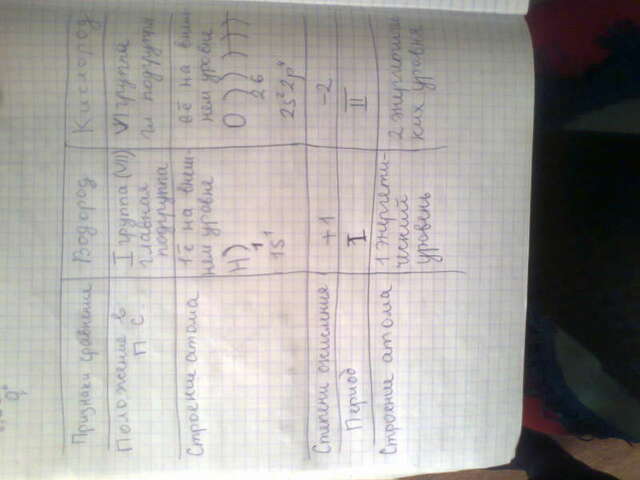 Признаки сравнение
Водород
Кислород
Положение в
П С
I группа (VII)
главная
подгруппа
VI группа
гл подгруппа
Строение атома
1ē на внеш-
нем уровне
H)
1
1S¹
6ē на внеш
нем уровне
O ) ) ) ) ) )
2 6
2S² 2p⁴
Степени окисления
+1
-2
Период
I
II
Строение атома
1 энергети-
ческий
уровень
2 энергетичес
ких уровня